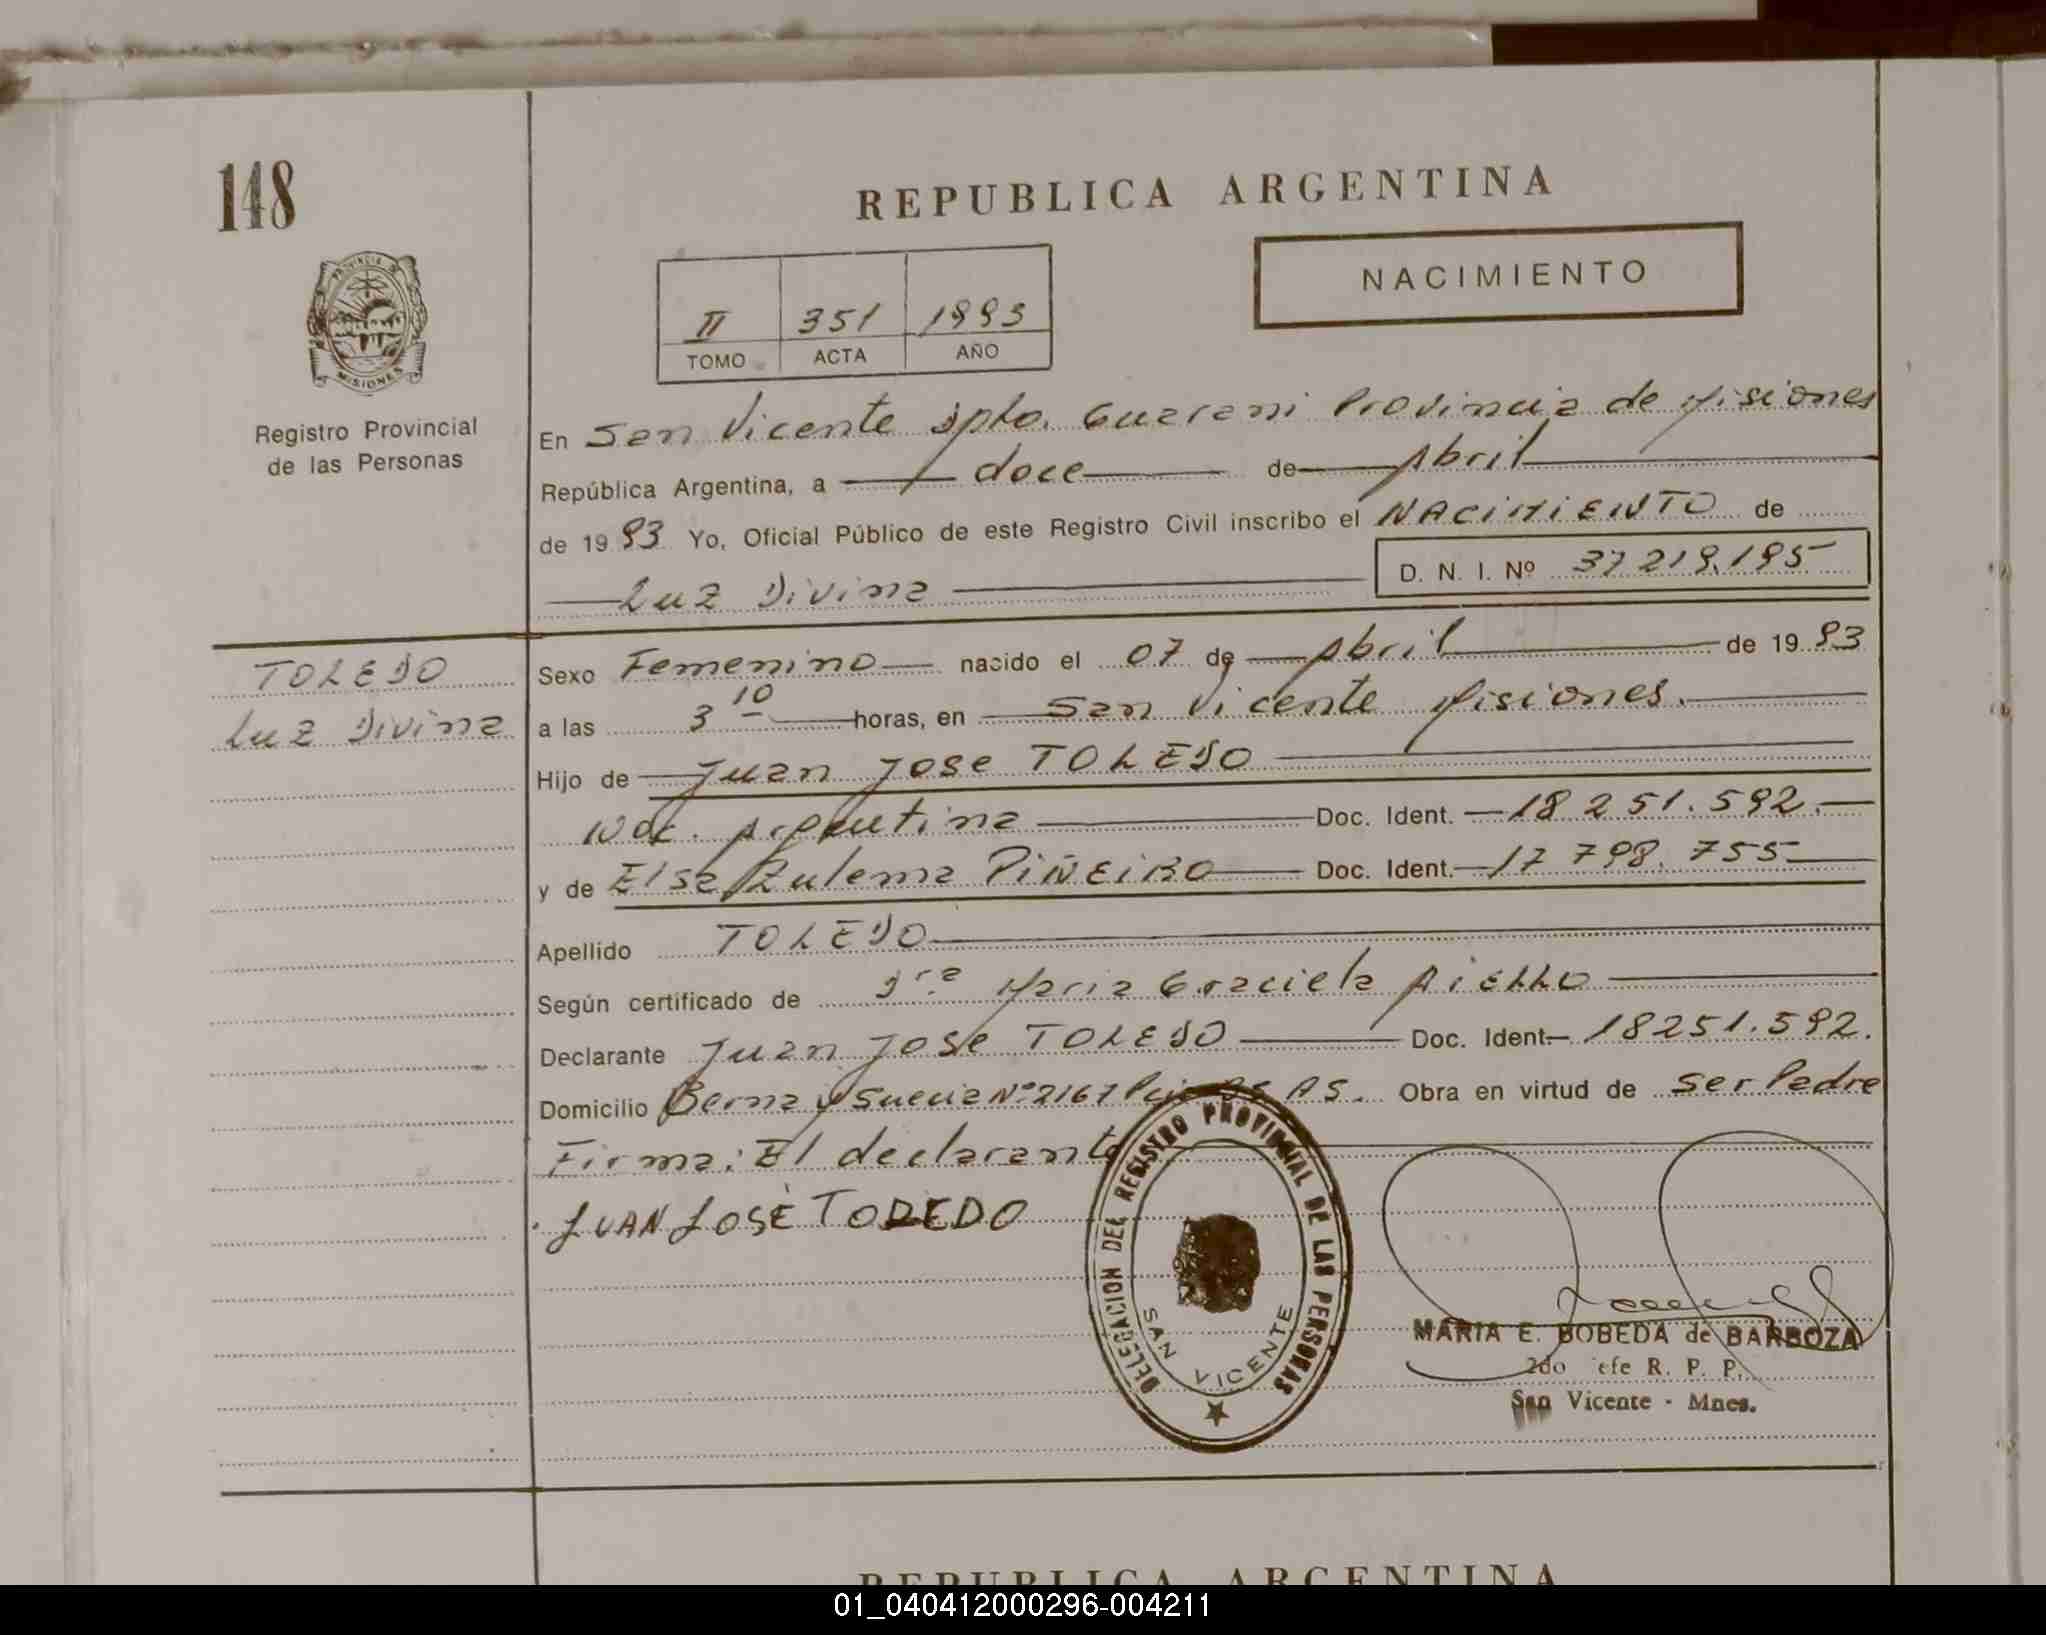 148
REPUBLICA ARGENTINA
PROVINCIA DE
MISIONES
Registro Provincial
de las Personas
II 351 1993
TOMO ACTA AÑO
NACIMIENTO
En San Vicente Dpto. Guarani Provincia de Misiones
República Argentina, a doce de Abril
de 1993 Yo, Oficial Público de este Registro Civil inscribo el NACIMIENTO de
Luz Divina D. N. I. Nº 37 219.195
TOLEDO
Luz Divina
Sexo Femenino nacido el 07 de Abril de 1993
a las 3 10 horas, en San Vicente Misiones.
Hijo de Juan Jose TOLEDO
Nac. Argentina Doc. Ident. 18 251.592.
y de Elsa Zulema PIÑEIRO Doc. Ident. 17 798.755
Apellido TOLEDO
Según certificado de Dra Maria Graciela AIELLO
Declarante Juan Jose TOLEDO Doc. Ident 18251.592.
Domicilio Berna y Suecia Nº 2167 Pcia Bs AS. Obra en virtud de ser Padre
Firma: El declarante
JUAN JOSÉ TOLEDO
DELEGACION DEL REGISTRO PROVINCIAL DE LAS PERSONAS
SAN VICENTE
MARIA E. BOBEDA de BARBOZA
2do efe R. P. P.
San Vicente - Mnes.
REPUBLICA ARGENTINA
01_040412000296-004211